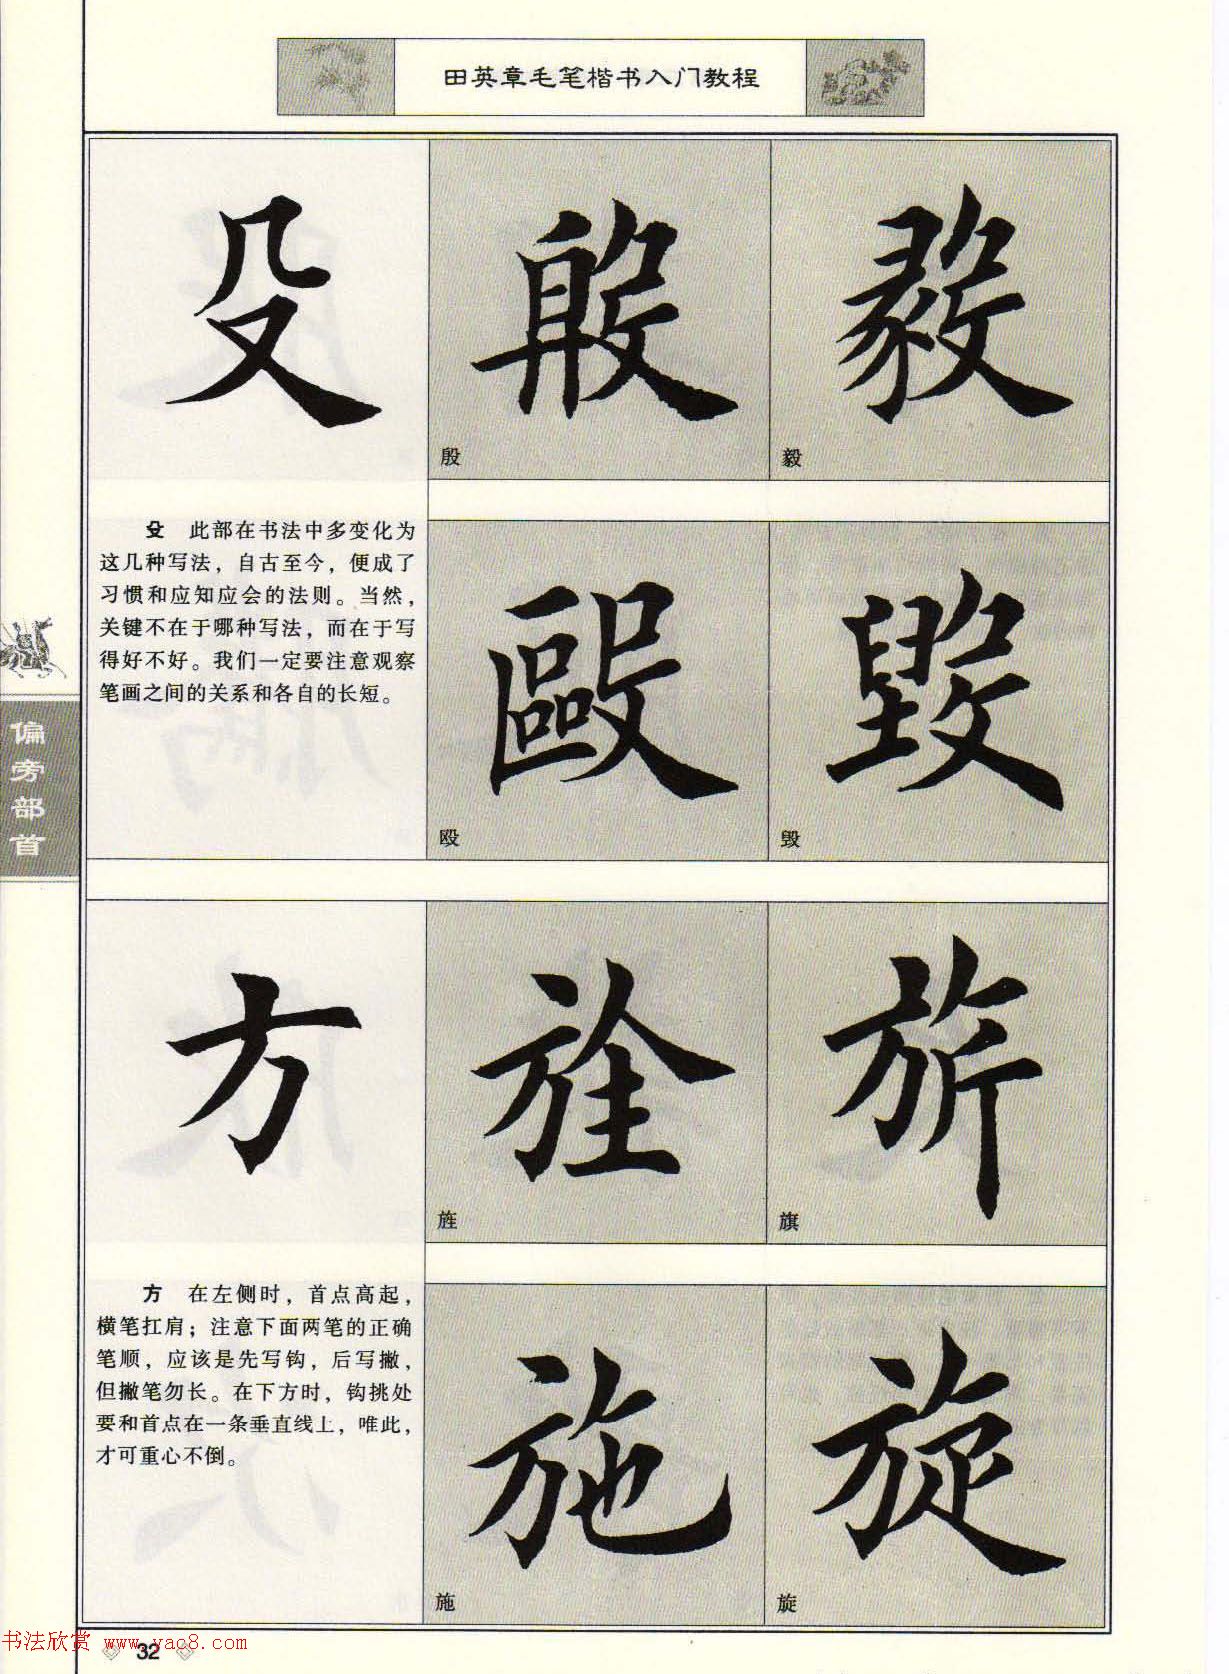 田英章毛笔楷书入门教程
殳
殷
毅
殷
毅
殳 此部在书法中多变化为
这几种写法，自古至今，便成了
习惯和应知应会的法则。当然，
关键不在于哪种写法，而在于写
得好不好。我们一定要注意观察
笔画之间的关系和各自的长短。
毆
毁
殴
毁
偏旁部首
方
旌
旂
旌
旗
方 在左侧时，首点高起，
横笔扛肩；注意下面两笔的正确
笔顺，应该是先写钩，后写撇，
但撇笔勿长。在下方时，钩挑处
要和首点在一条垂直线上，唯此，
才可重心不倒。
施
旋
施
旋
书法欣赏 www.yac8.com
32